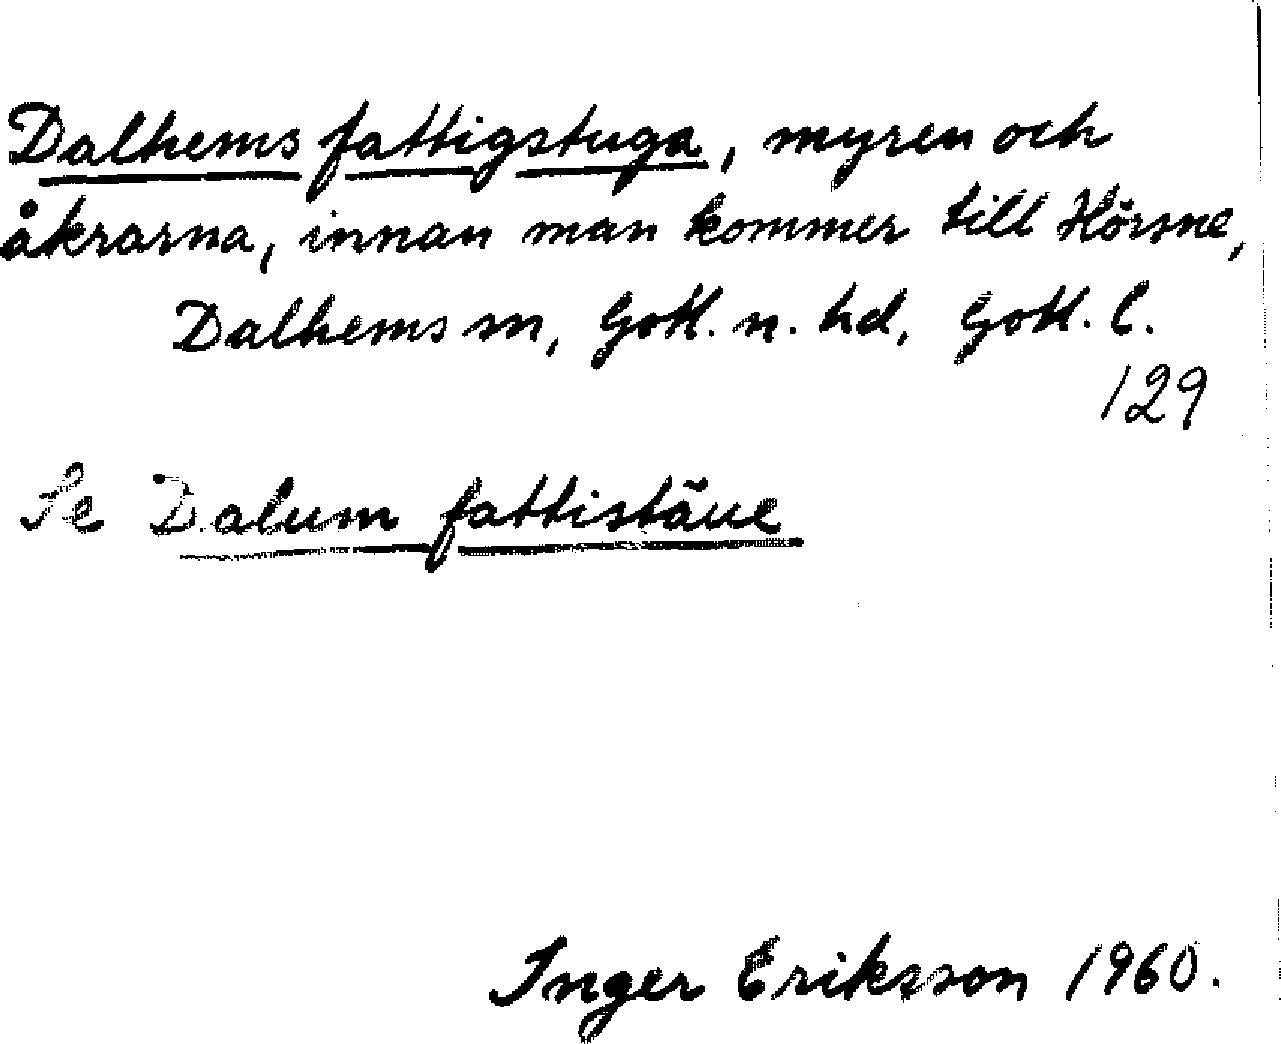 Dalhems fattigstuga, myren och
åkrarna, innan man kommer till Hörsne,
Dalhems sn, Gotl. n. hd, Gotl. l.
129
Se Dalum fattistäue
Inger Eriksson 1960.